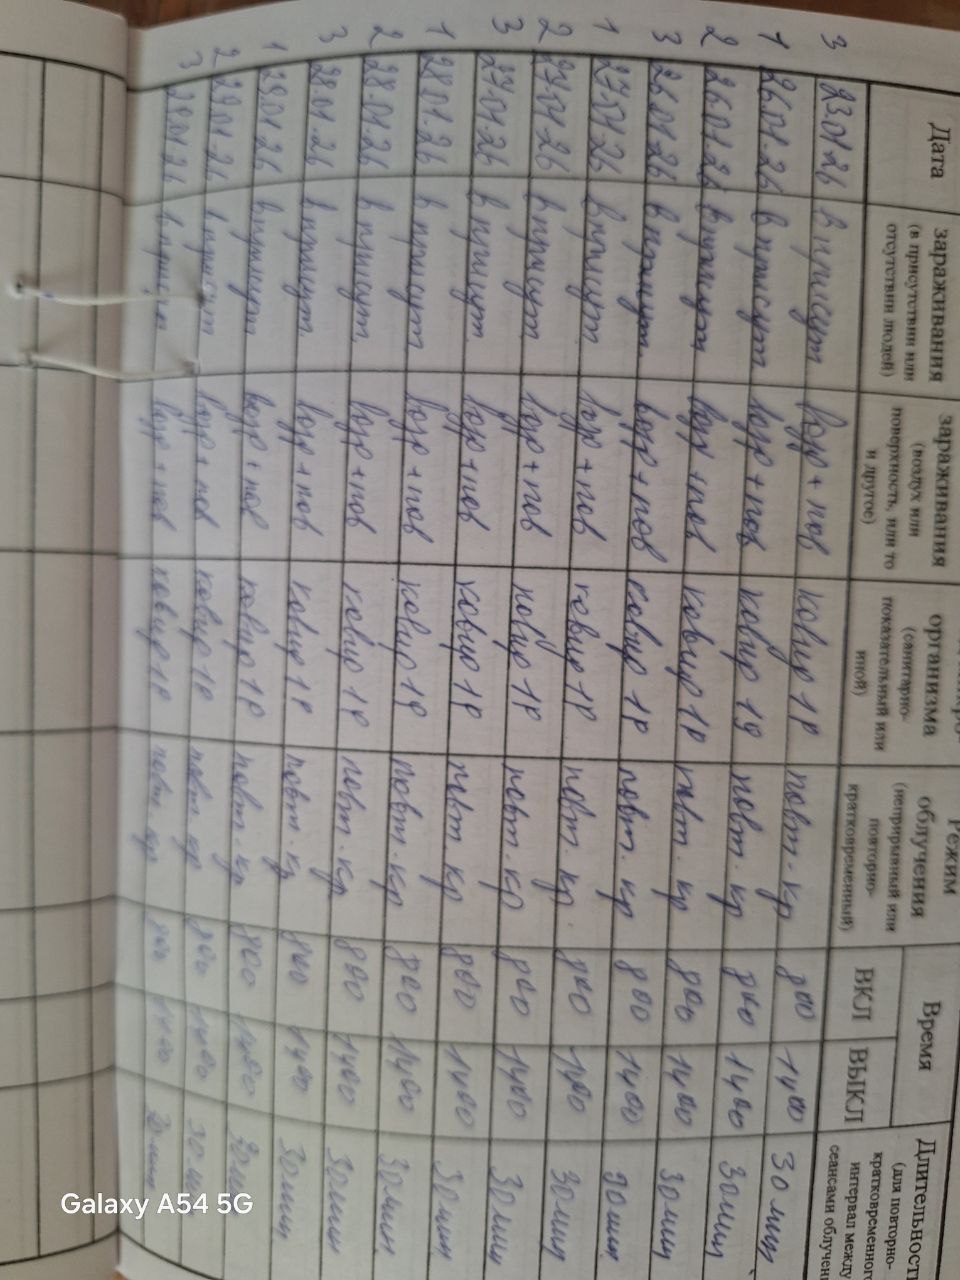 Дата
зараживания
(в присутствии или
отсутствии людей)
зараживания
(воздух или
поверхность, или то
и другое)
организма
(санитарно-
показательный или
иной)
Режим
облучения
(непрерывный или
повторно-
кратковременный)
Время
ВКЛ
ВЫКЛ
Длительност
(для повторно-
кратковременного
интервал между
сеансами облучен
3 23.01.26 в присут. возд + пов ковид 1р повт. кр 800 1400 30 мин
1 26.01.26 в присут возд + пов ковид 1р повт. кр 800 1400 30 мин
2 26.01.26 в присут возд + пов ковид 1р повт. кр 800 1400 30 мин
3 26.01.26 в присут. возд + пов ковид 1р повт. кр 800 1400 30 мин
1 27.01.26 в присут возд + пов ковид 1р повт. кр. 800 1400 30 мин
2 27.01.26 в присут возд + пов ковид 1р повт. кр 800 1400 30 мин
3 27.01.26 в присут возд + пов ковид 1р повт. кр 800 1400 30 мин
1 28.01.26 в присут возд + пов ковид 1р повт. кр 800 1400 30 мин
2 28.01.26 в присут возд + пов ковид 1р повт. кр 800 1400 30 мин
3 28.01.26 в присут возд + пов ковид 1р повт. кр 800 1400 30 мин
1 29.01.26 в присут возд + пов ковид 1р повт. кр 800 1400 30 мин
2 29.01.26 в присут возд + пов ковид 1р повт. кр 800 1400 30 м
3 29.01.26 в присут возд + пов ковид 1р повт. кр 800 1400 30 мин
Galaxy A54 5G